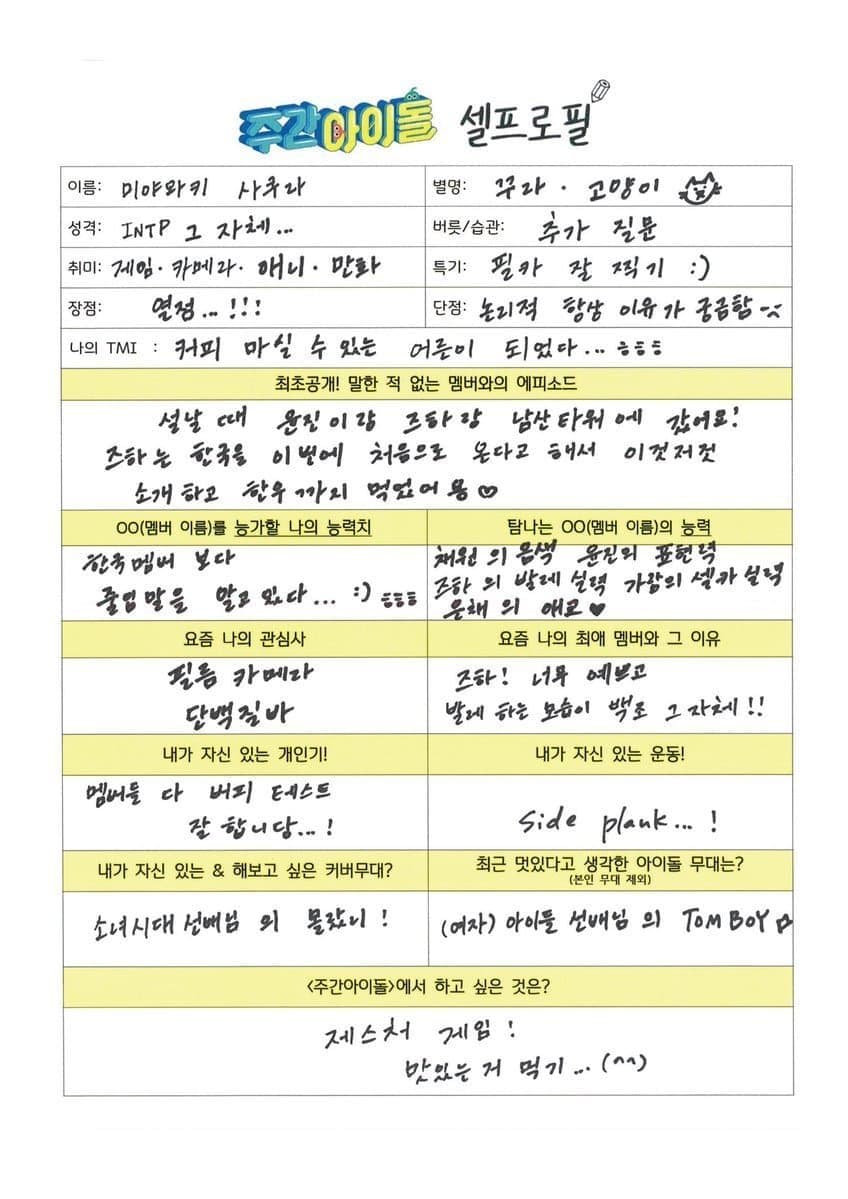 주간아이돌 셀프로필
이름: 미야와키 사쿠라
별명: 꾸라 · 고양이
성격: INTP 그 자체...
버릇/습관: 추가 질문
취미: 게임 · 카메라 · 애니 · 만화
특기: 필카 잘 찍기 :)
장점: 열정...!!!
단점: 논리적 항상 이유가 궁금함
나의 TMI : 커피 마실 수 있는 어른이 되었다... ㅎㅎㅎ
최초공개! 말한 적 없는 멤버와의 에피소드
설날 때 윤진이랑 즈하랑 남산타워에 갔어요!
즈하는 한국을 이번에 처음으로 온다고 해서 이것저것
소개하고 한우까지 먹었어용♡
OO(멤버 이름)를 능가할 나의 능력치
한국멤버 보다
줄임말을 알고 있다... :) ㅎㅎㅎ
탐나는 OO(멤버 이름)의 능력
채원의 음색 윤진의 표현력
즈하의 발레 실력 가람의 셀카 실력
은채의 애교♥
요즘 나의 관심사
필름 카메라
단백질바
요즘 나의 최애 멤버와 그 이유
즈하! 너무 예쁘고
발레 하는 모습이 백조 그 자체!!
내가 자신 있는 개인기!
멤버들 다 버피 테스트
잘 합니당...!
내가 자신 있는 운동!
side plank...!
내가 자신 있는 & 해보고 싶은 커버무대?
소녀시대 선배님의 몰랐니!
최근 멋있다고 생각한 아이돌 무대는?
(본인 무대 제외)
(여자)아이들 선배님의 TOMBOY☆
<주간아이돌>에서 하고 싶은 것은?
제스처 게임!
맛있는 거 먹기...(^^)